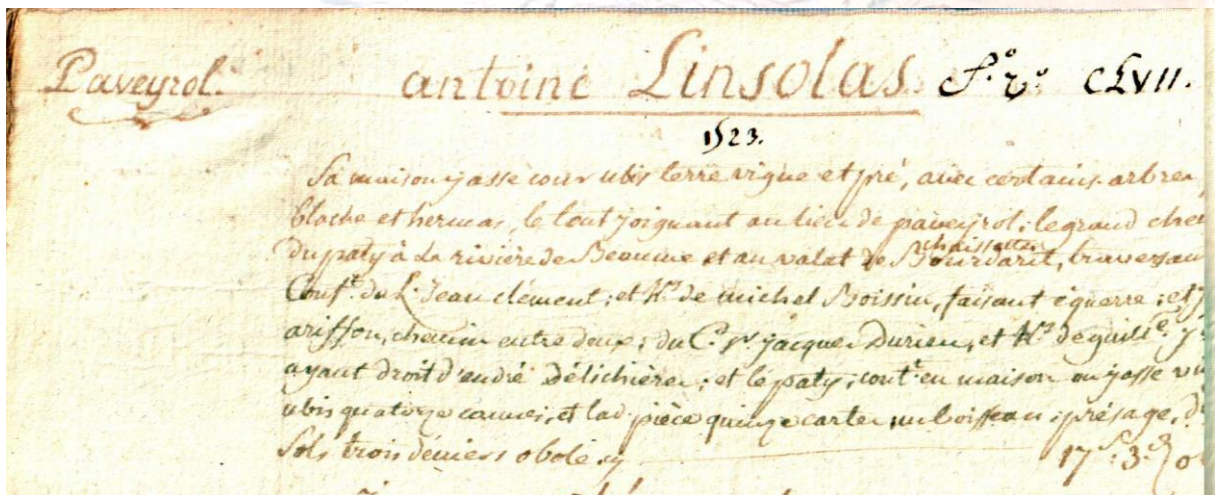 Paveyrol. antoine Linsolas. f.º v.º CLVII.
1523.
Sa maison jasse cour ubis terre vigne et pré, avec certains arbres,
blache et hermas, le tout joignant au lieu de paveyrol: le grand che
du paty à la rivière de Beaume et au valat de Bourdaric, traversant
chaissettes
Conf.t du L. Jean clément; et h.rs de michel Boissin, faisant équerre; et
ariffon, chemin entre deux; du C. s.r jacques Durieu, et h.rs de guill.e
ayant droit d'endré Délichières; et le paty; cont.t en maison ou jasse
ubis quatorze cannes, et lad. pièce quinze cartes un boisseau; présage,
sols trois déniers obole cy 17 s. 3 d. o